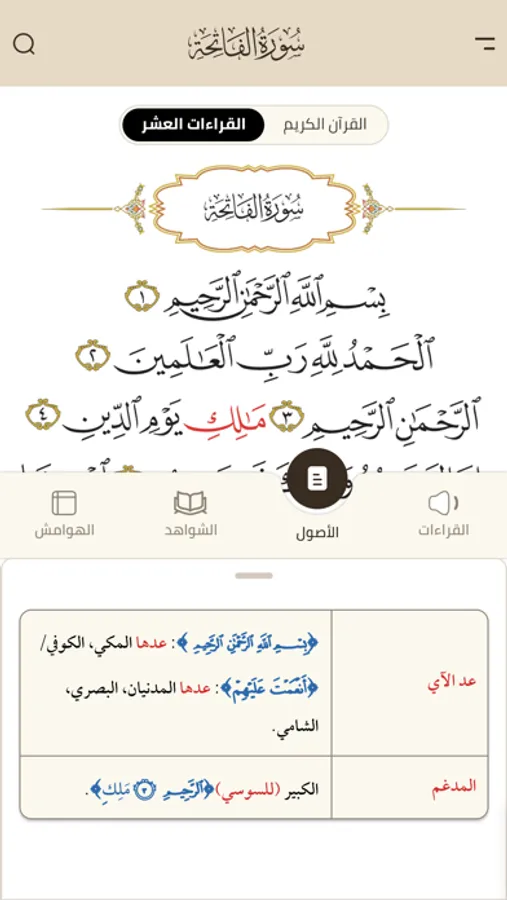 سُورَةُ الفَاتِحَةِ
القرآن الكريم
القراءات العشر
سُورَةُ الفَاتِحَةِ
بِسْمِ ٱللَّهِ ٱلرَّحْمَٰنِ ٱلرَّحِيمِ ١
ٱلْحَمْدُ لِلَّهِ رَبِّ ٱلْعَٰلَمِينَ ٢
ٱلرَّحْمَٰنِ ٱلرَّحِيمِ ٣ مَٰلِكِ يَوْمِ ٱلدِّينِ ٤
القراءات
الأصول
الشواهد
الهوامش
عد الآي
﴿بِسْمِ ٱللَّهِ ٱلرَّحْمَٰنِ ٱلرَّحِيمِ﴾: عدها المكي، الكوفي/
﴿أَنْعَمْتَ عَلَيْهِمْ﴾: عدها المدنيان، البصري،
الشامي.
المدغم
الكبير (للسوسي) ﴿ٱلرَّحِيمِ ٣ مَلِكِ﴾.